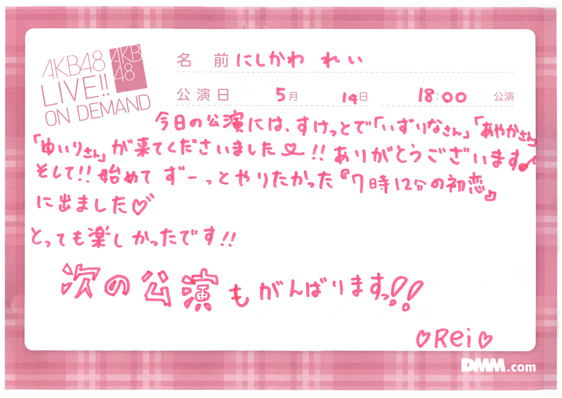 AKB48
LIVE!!
ON DEMAND
AKB
48
名 前 にしかわ れい
公演日 5月 19日 18:00 公演
今日の公演には、すけっとで「いずりなさん」「あやかさん」
「ゆいりさん」が来てくださいました♡!! ありがとうございます♪
そして!! 始めて ずーっとやりたかった『7時12分の初恋』
に出ました♡
とっても楽しかったです!!
次の公演もがんばりますっ!!
♡Rei♡
DMM.com